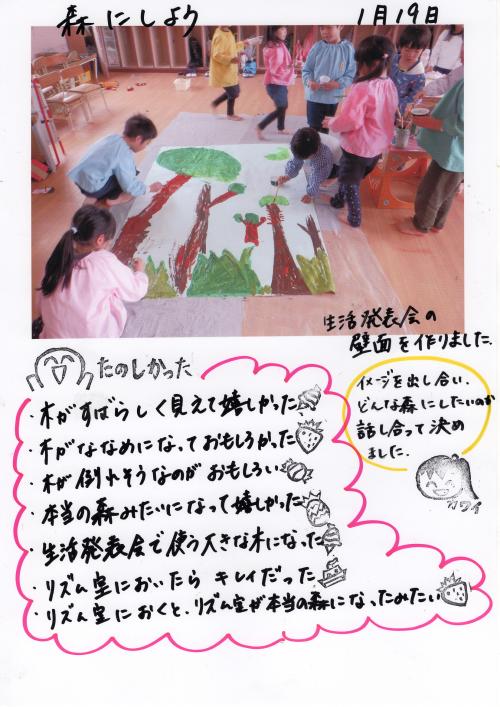 森にしよう 1月19日
生活発表会の
壁面を作りました。
たのしかった
イメージを出し合い、
どんな森にしたいのか
話し合って決め
ました。
カワイ
・木がすばらしく見えて嬉しかった
・木がななめになっておもしろかった
・木が倒れそうなのがおもしろい
・本当の森みたいになって嬉しかった
・生活発表会で使う大きな木になった
・リズム室においたらキレイだった
・リズム室におくと、リズム室が本当の森になったみたい